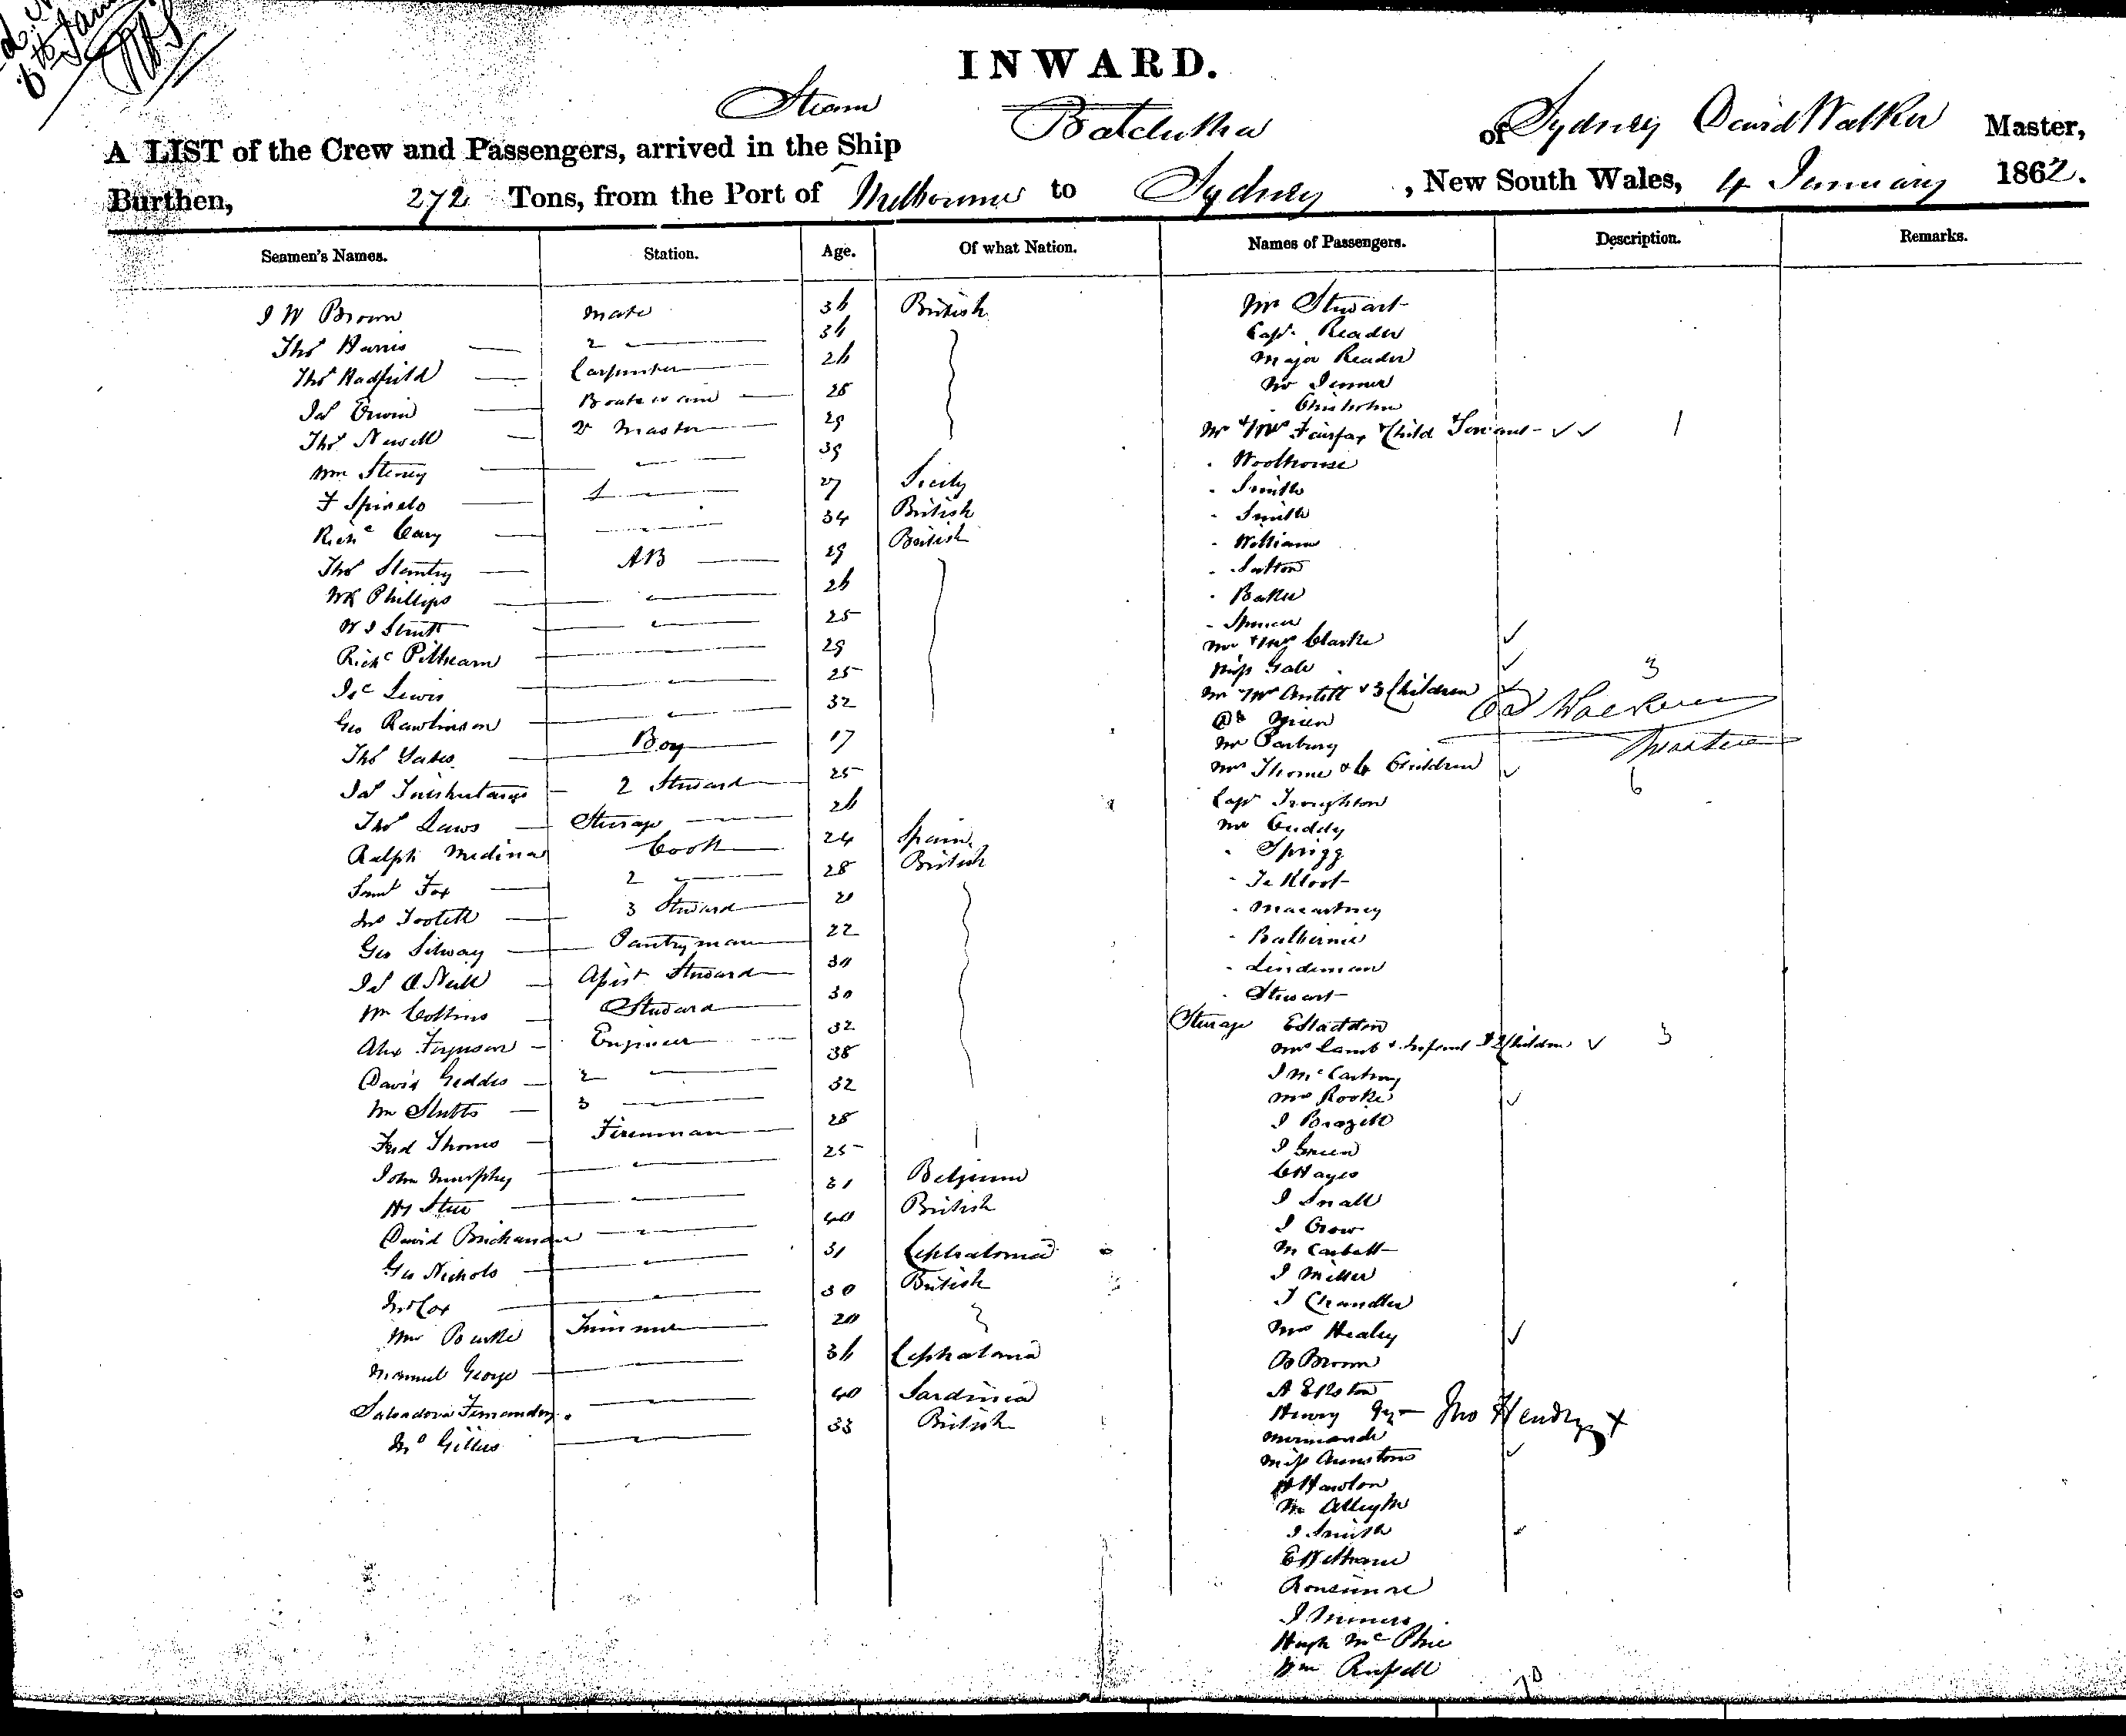 INWARD.
Steam
A LIST of the Crew and Passengers, arrived in the Ship Balclutha of Sydney David Walker Master,
Burthen, 272 Tons, from the Port of Melbourne to Sydney, New South Wales, 4 January 1862.
Seamen's Names. Station. Age. Of what Nation. Names of Passengers. Description. Remarks.
J W Brown Mate 36 British
Thos Harris 2 36
Thos Hadfield Carpenter 26
Jas Erwin Boatswain 28
Thos Newell Master 29
Wm 39
F Spinelo 27 Sicily
Richd Cary 34 British
Thos AB 29 British
Wm Phillips 26
W J 25
Richd 29
Lewis 25
Geo Rawlinson 32
Thos Yates Boy 17
Jas 2 Steward 25
Thos Laws Steerage 26
Ralph Medina Cook 24 Spain
Saml Fox 2 28 British
Jno 3 Steward 20
Geo Silway Pantryman 22
Jas O Neill Assist Steward 30
Wm Collins Steward 30
Alex Ferguson Engineer 32
David Geddes 2 38
Wm Stubbs 3 32
Fred Thoms Fireman 28
John Murphy 25
Hy 31 Belgium
David Buchanan 40 British
Geo Nichols 31 Cephalonia
Jno Cox 30 British
Wm Burke Trimmer 20
Manuel George 36 Cephalonia
Salvadore Fernandez 40 Sardinia
Jno Gillies 33 British
Mr Stewart
Capt Reader
Major Reader
Mr Jenner
Chisholm
Mr & Mrs Fairfax Child Servant 1
Woolhouse
Smith
Smith
William
Sutton
Baker
Spencer
Mr & Mrs Clarke
Miss Gale 3
Mr Mrs Antill & 3 Children
D Walker
Dr
Master
Mr Parbury
Mrs Thorne & 6 Children 6
Capt Troughton
Mr Cuddy
Sprigg
Te Kloot
Macartney
Lindeman
Stewart
Steerage
Mrs Lamb & Infant & 2 Children 3
J McCartney
Mrs Rooke
J
J Green
C Hayes
J Snall
J Crow
M Corbett
J Miller
J Chandler
Mrs Healey
B Brown
A Elston
Henry Jno Hendry
Miss
J Smith
Hugh McPhie
Wm Russell
70